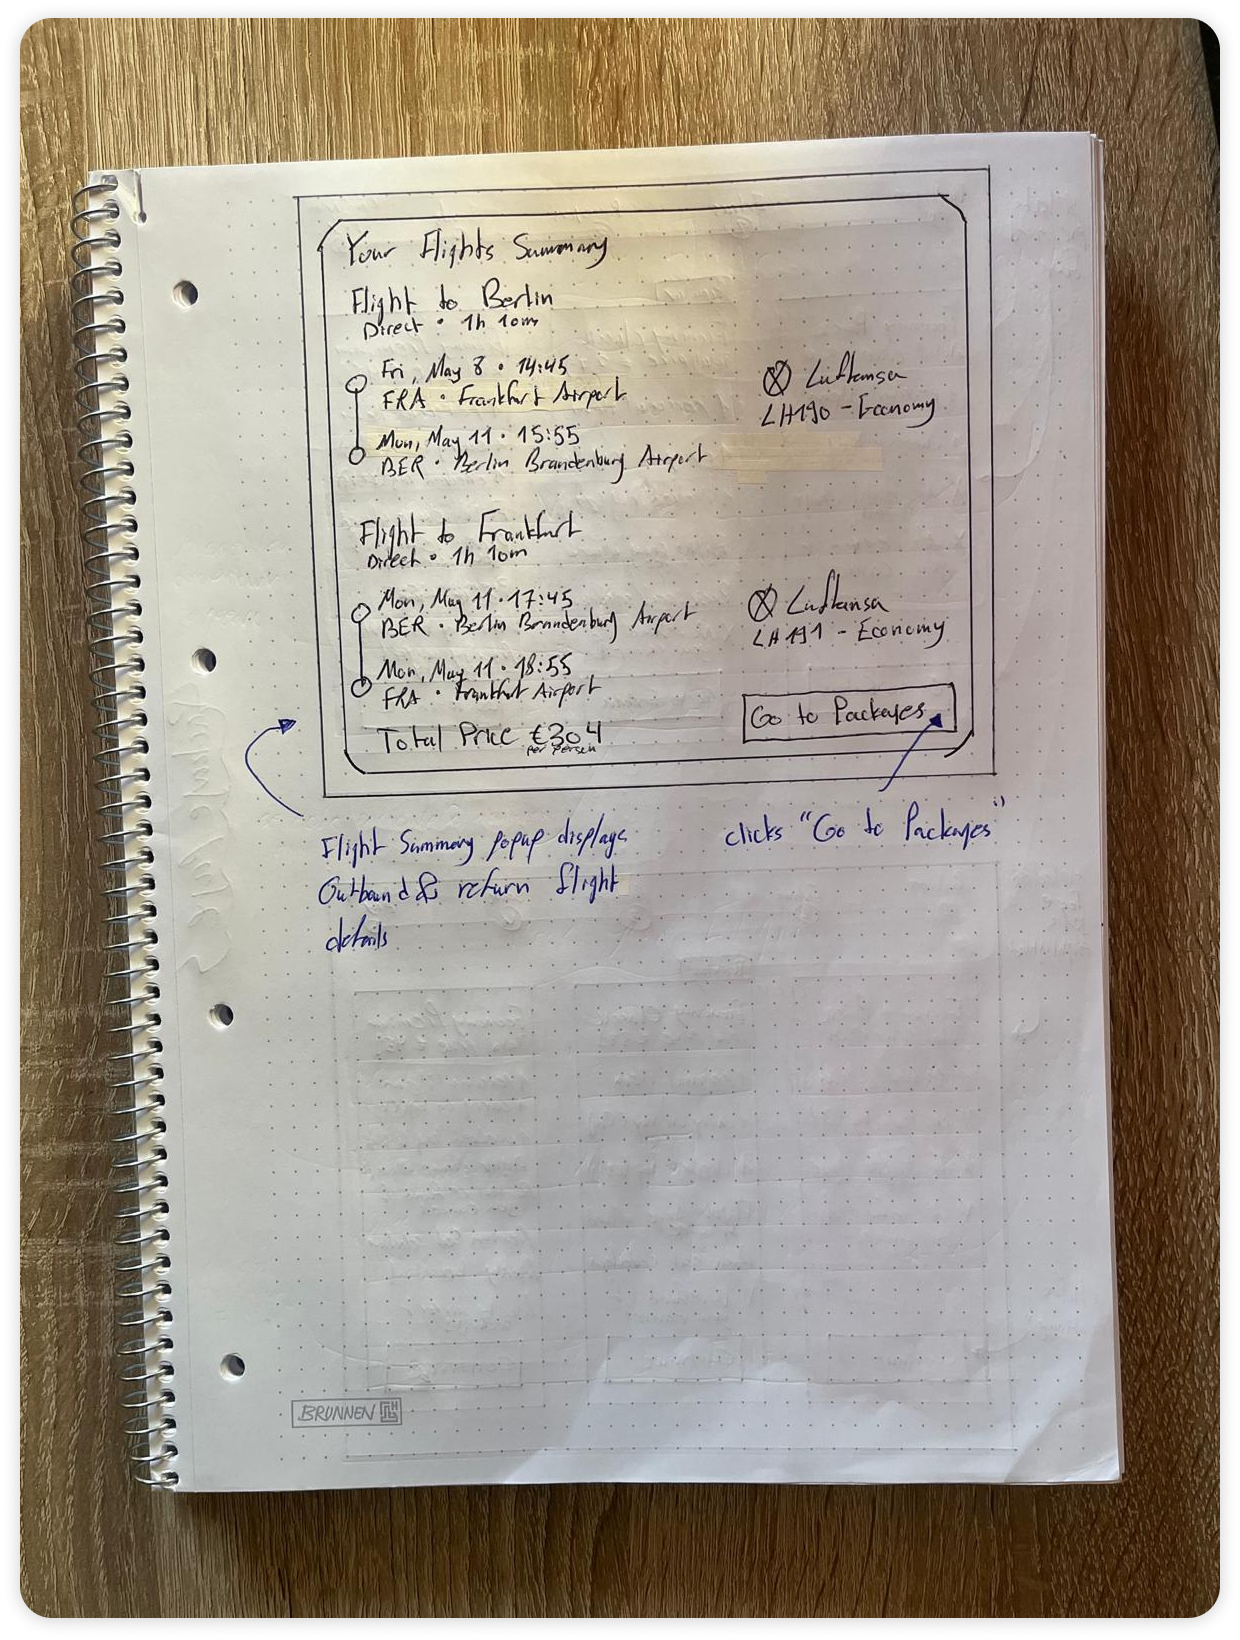 Your Flights Summary
Flight to Berlin
Direct • 1h 10m
Fri, May 8 • 14:45
FRA • Frankfurt Airport
Luftansa
LH190 - Economy
Mon, May 11 • 15:55
BER • Berlin Brandenburg Airport
Flight to Frankfurt
Direct • 1h 10m
Mon, May 11 • 17:45
BER • Berlin Brandenburg Airport
Luftansa
LH191 - Economy
Mon, May 11 • 18:55
FRA • Frankfurt Airport
Total Price €304
per person
Go to Packages
Flight Summary popup displays
Outbound & return flight
details
clicks "Go to Packages"
BRUNNEN